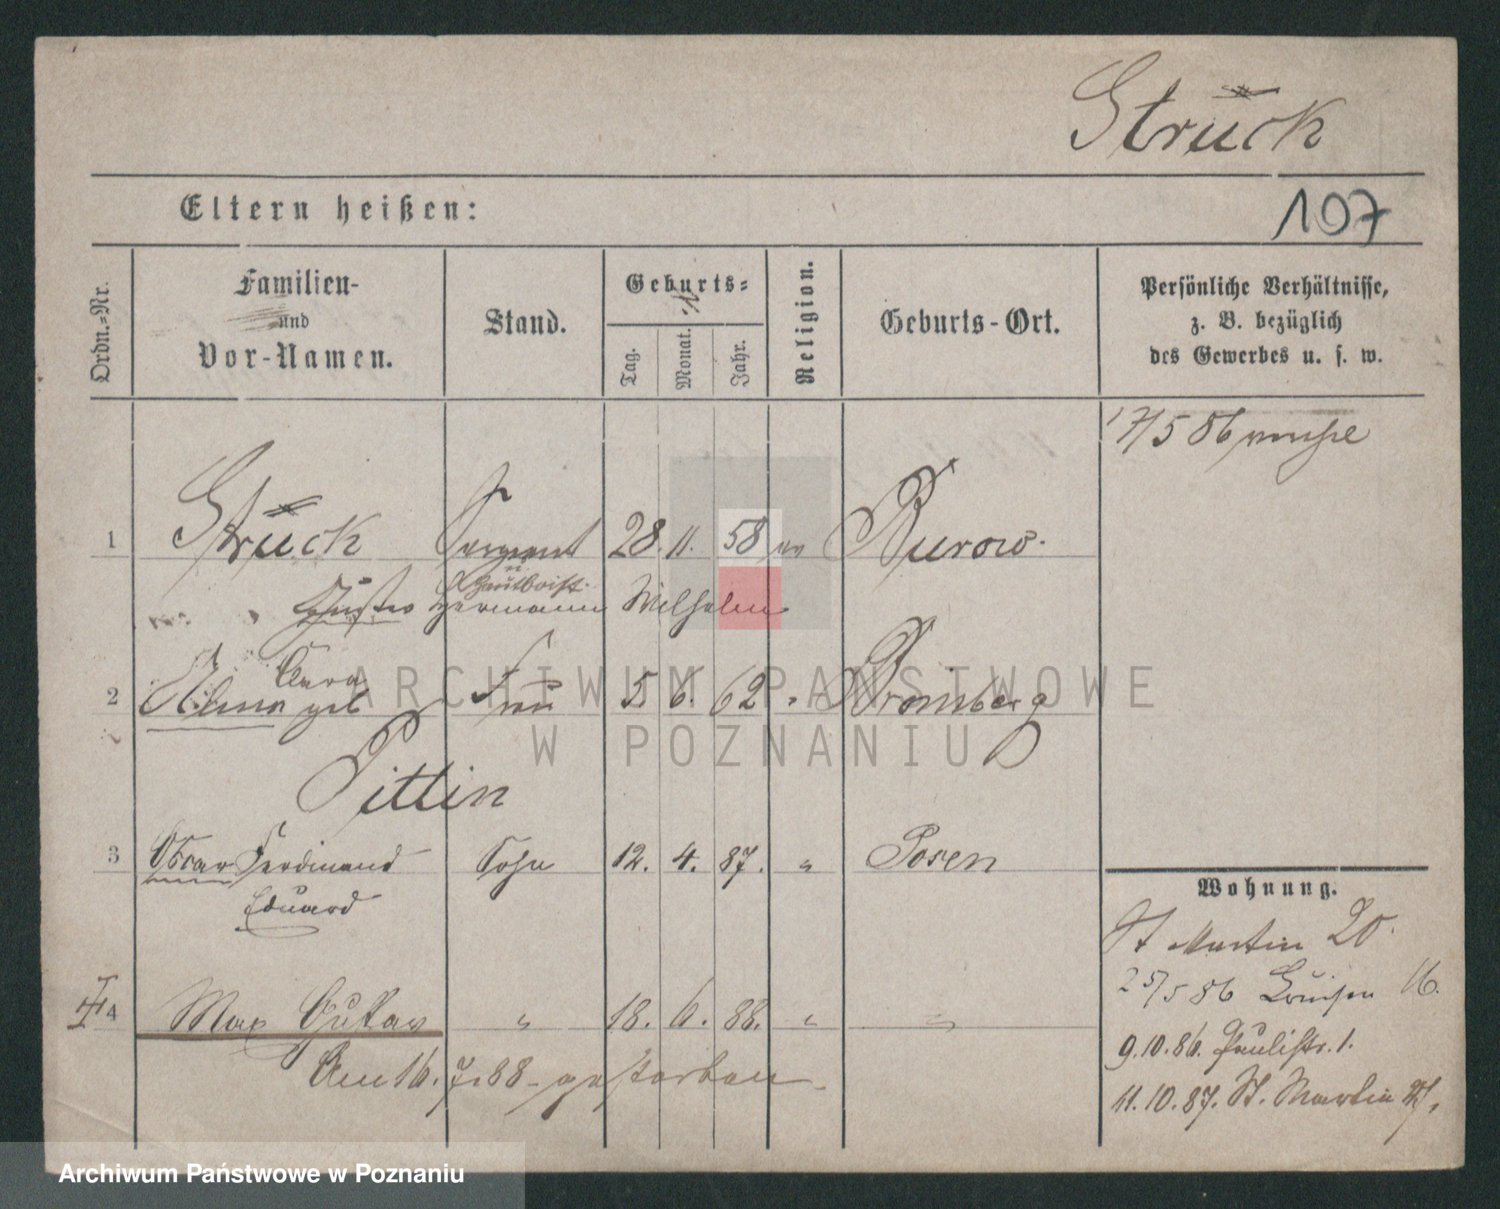 Struck
Eltern heißen:
107
Ordn.-Nr.
Familien-
und
Vor-Namen.
Stand.
Geburts-
Tag.
Monat.
Jahr.
Religion.
Geburts-Ort.
Persönliche Verhältnisse,
z. B. bezüglich
des Gewerbes u. s. w.
17/5 86
1 Struck Sergeant 28. 11. 58 ev Burow.
u. Hautboist
Gustav Hermann Wilhelm
Clara
2 geb Frau 5 6. 62 " Bromberg
Pittlin
3 Oscar Ferdinand Sohn 12. 4. 87. " Posen
Eduard
4 Max Gustav " 18. 6. 88. " "
Am 16. 7. 88 - gestorben
Wohnung.
St Martin 20.
25/5 86 Louisen 16.
9.10.86. Paulistr. 1.
11.10.87. St. Martin
ARCHIWUM PAŃSTWOWE
W POZNANIU
Archiwum Państwowe w Poznaniu